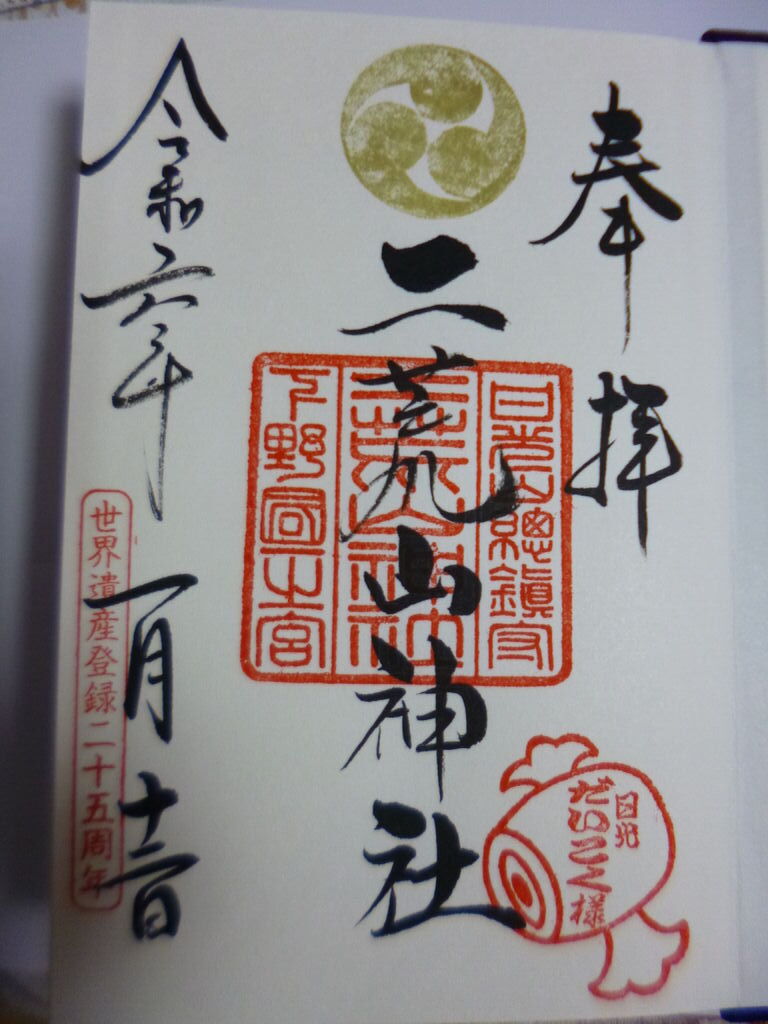 奉拝
日光山總鎭守
二荒山神社
二荒山神社
下野國一之宮
日光
だいこく様
令和六年 一月十二日
世界遺産登録二十五周年